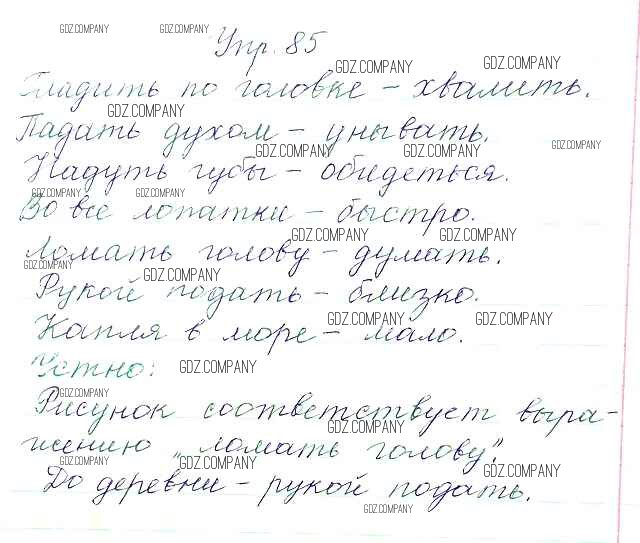 GDZ.COMPANY GDZ.COMPANY
Упр. 85
GDZ.COMPANY GDZ.COMPANY
Гладить по головке – хвалить.
GDZ.COMPANY
Падать духом – унывать.
GDZ.COMPANY GDZ.COMPANY GDZ.COMPANY
Надуть губы – обидеться.
GDZ.COMPANY GDZ.COMPANY
Во все лопатки – быстро.
GDZ.COMPANY GDZ.COMPANY
Ломать голову – думать.
GDZ.COMPANY GDZ.COMPANY
Рукой подать – близко.
GDZ.COMPANY GDZ.COMPANY
Капля в море – мало.
Устно: GDZ.COMPANY
GDZ.COMPANY
Рисунок соответствует выра-
GDZ.COMPANY
жению „ломать голову".
GDZ.COMPANY GDZ.COMPANY GDZ.COMPANY
До деревни – рукой подать.
GDZ.COMPANY